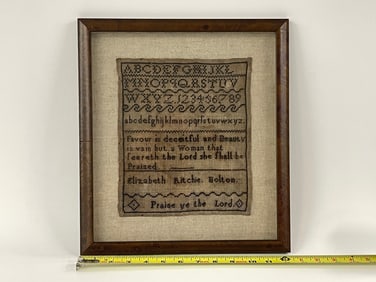 ABCDEFGHIJKL
MNOPQRSTUV
WXYZ 123456789
abcdefghijklmnopqrſstuvwxyz
Favour is deceitful and Beauty
is vain but a Woman that
feareth the Lord she ſhall be
Praised
Elizabeth Ritchie Bolton
Praise ye the Lord